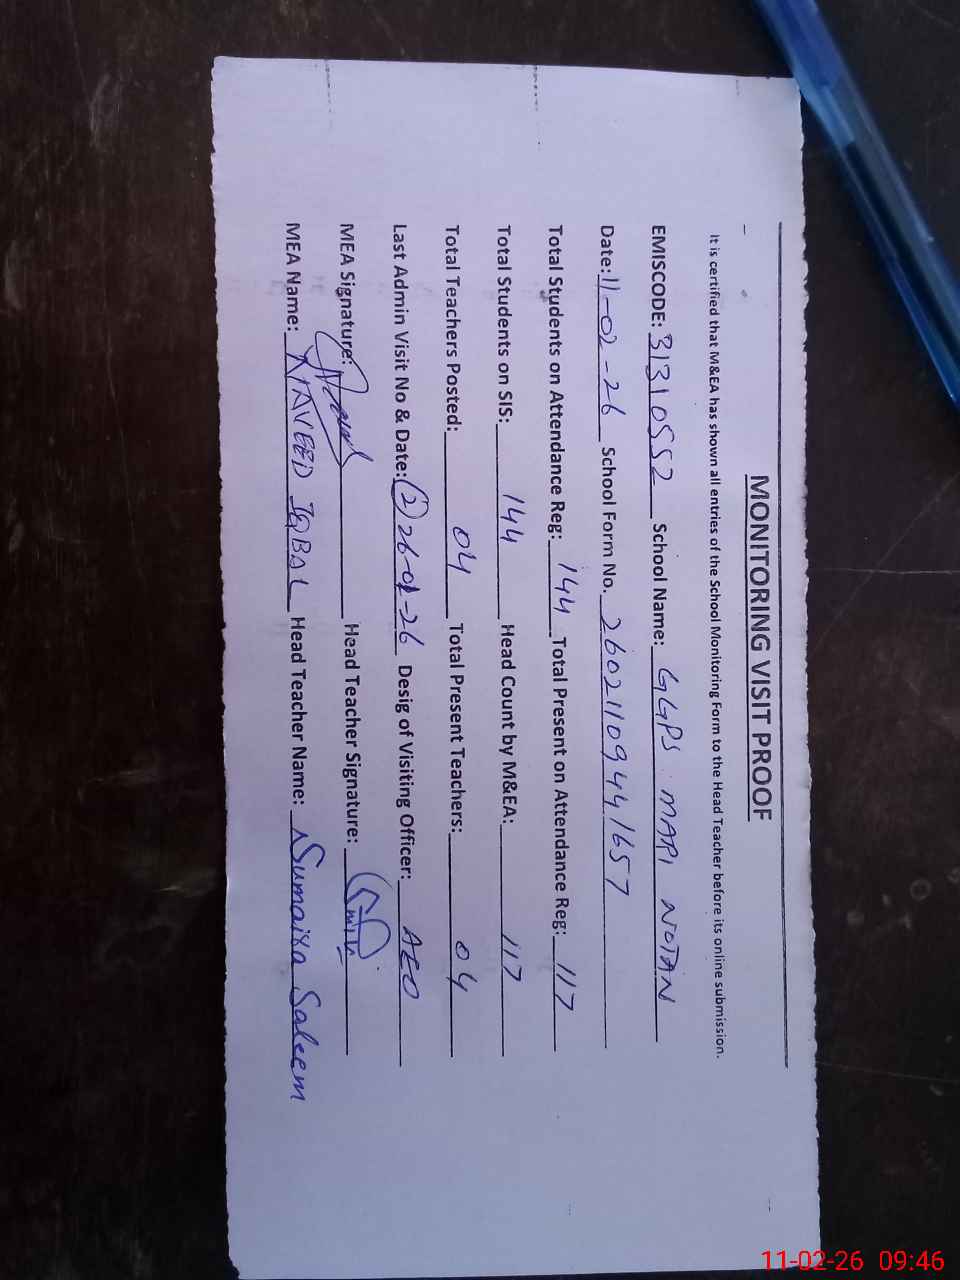 MONITORING VISIT PROOF
It is certified that M&EA has shown all entries of the School Monitoring Form to the Head Teacher before its online submission.
EMISCODE: 31310552 School Name: GGPS MARI NOTAN
Date: 11-02-26 School Form No. 26021109441657
Total Students on Attendance Reg: 144 Total Present on Attendance Reg: 117
Total Students on SIS: 144 Head Count by M&EA: 117
Total Teachers Posted: 04 Total Present Teachers: 04
Last Admin Visit No & Date: (2) 26-01-26 Desig of Visiting Officer: AEO
MEA Signature: Head Teacher Signature:
MEA Name: NAVEED IQBAL Head Teacher Name: Sumaika Saleem
11-02-26 09:46